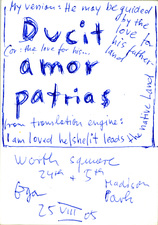 My version: He may be guided
by the
love to
his father
land
Ducit
(or: the love for his...
amor
patrias
from translation engine:
I am loved he|she|it leads the
native land
Worth square
24th + 5th
Madison
Park
25 VIII 05